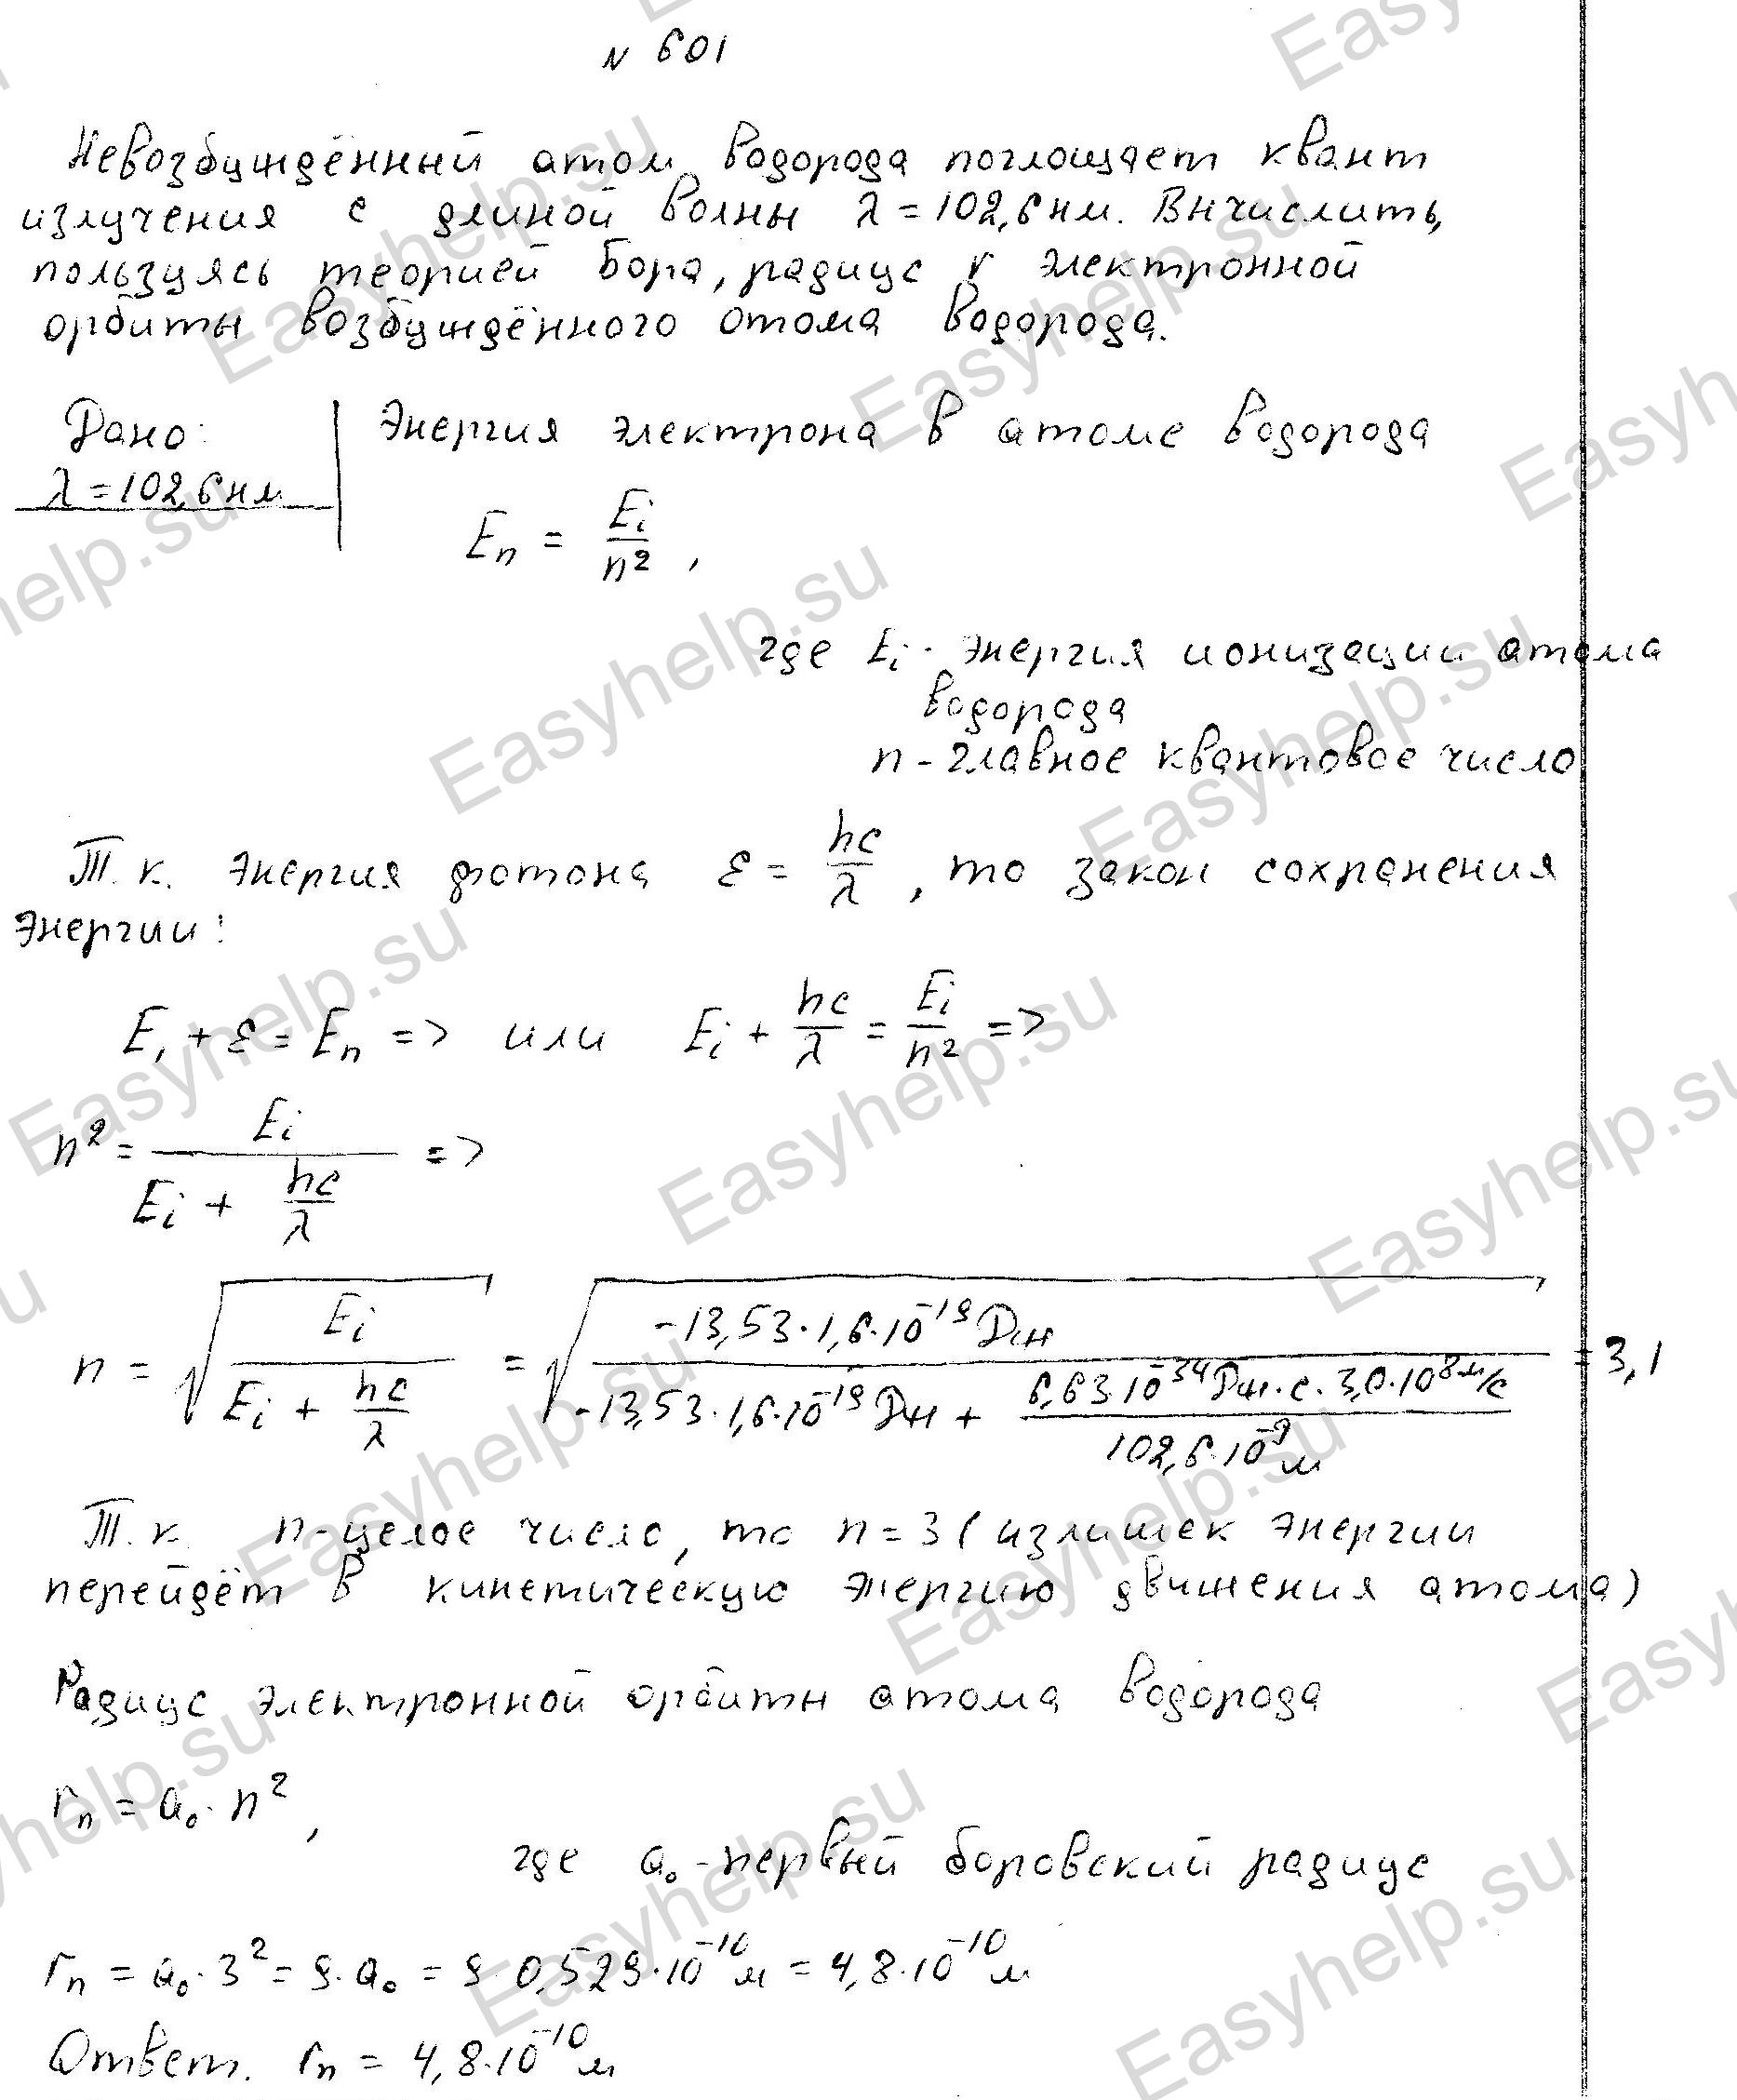 N 601
Невозбуждённый атом водорода поглощает квант
излучения с длиной волны λ = 102,6 нм. Вычислить,
пользуясь теорией Бора, радиус r электронной
орбиты возбуждённого атома водорода.
Дано: Энергия электрона в атоме водорода
λ = 102,6 нм
Eₙ = Eᵢ/n² ,
где Eᵢ - энергия ионизации атома
водорода
n - главное квантовое число
Т. к. энергия фотона ε = hc/λ , то закон сохранения
энергии:
E₁ + ε = Eₙ => или Eᵢ + hc/λ = Eᵢ/n² =>
n² = Eᵢ/(Eᵢ + hc/λ) =>
n = √(Eᵢ/(Eᵢ + hc/λ)) = √(-13,53·1,6·10⁻¹⁹ Дж/(-13,53·1,6·10⁻¹⁹ Дж + 6,63·10⁻³⁴ Дж·с·3,0·10⁸ м/с/102,6·10⁻⁹ м)) = 3,1
Т. к. n - целое число, то n = 3 (излишек энергии
перейдёт в кинетическую энергию движения атома)
Радиус электронной орбиты атома водорода
rₙ = a₀ · n² ,
где a₀ - первый боровский радиус
rₙ = a₀ · 3² = 9 · a₀ = 9 · 0,529·10⁻¹⁰ м = 4,8·10⁻¹⁰ м
Ответ. rₙ = 4,8·10⁻¹⁰ м
Easyhelp.su